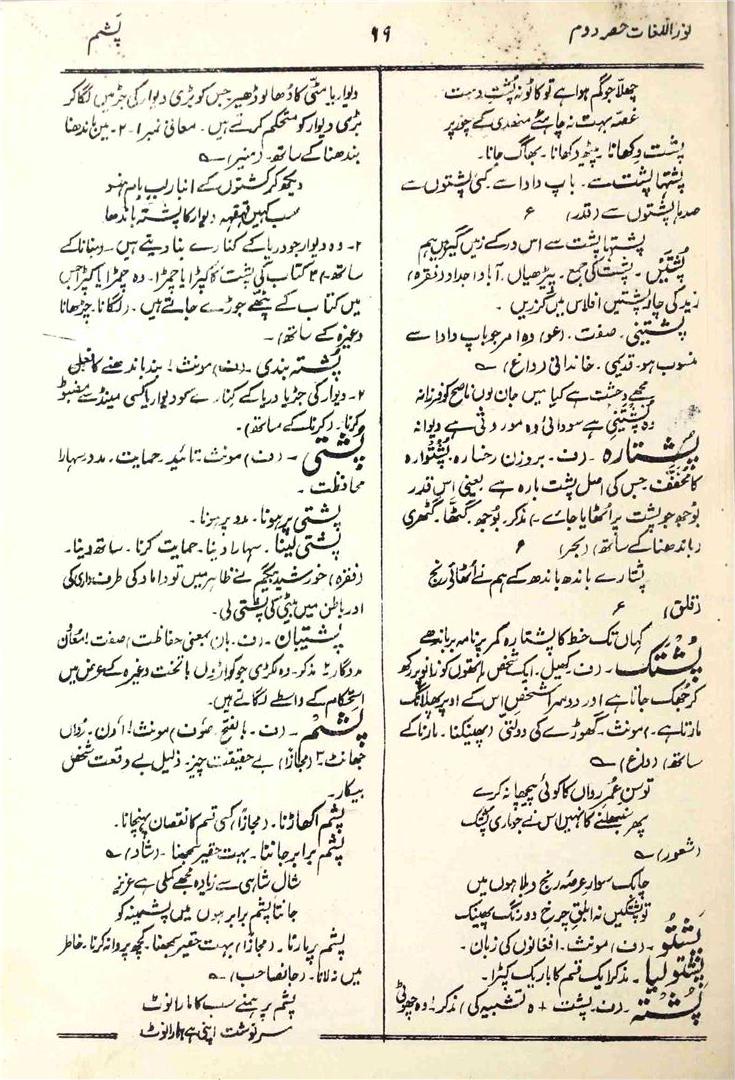 نور اللغات حصہ دوم
۶۹
پَشم
چھلا جو گم ہوا ہے تو کاٹو نہ پُشتِ دست
غصہ بہت نہ چاہئے منھدی کے چور پر
پشت دِکھانا۔ پیٹھ دکھانا۔ بھاگ جانا۔
پشتہا پشت سے۔ باپ دادا سے کئی پشتوں سے
صدہا پشتوں سے (قدر) ع
پشتہا پشت سے اس در کے زمیں گیر ہیں ہم
پُشتَیں۔ پشت کی جمع۔ پیڑھیاں۔ آبا و اجداد (فقرہ)
زید کی چار پشتیں افلاس میں گزریں۔
پشتینی۔ صفت۔ (عو) وہ امر جو باپ دادا سے
منسوب ہو۔ قدیمی۔ خاندانی (داغ) ؎
مجھے وحشت ہے کیا میں جان لوں ناصح کو فرزانہ
وہ پشتینی ہے سودائی وہ موروثی ہے دیوانہ
پُشتارہ۔ (ف۔ بروزن رخسارہ۔ پُشتوارہ
کا مُخفّف جس کی اصل پشت بارہ ہے یعنی اس قدر
بوجھ جو پشت پر اُٹھایا جائے۔) مذکر۔ بوجھ۔ گٹھا۔ گٹھری
(باندھنا کے ساتھ) (بحر) ع
پشتارے باندھ باندھ کے ہم نے اُٹھائے رنج
(قلق) ع
کہاں تک خط کا پشتارہ کمر پر نامہ بر باندھے
پُشتک۔ (ف۔ کھیل۔ ایک شخص ہاتھوں کو زانو پر رکھ
کر جھک جاتا ہے اور دوسرا شخص اس کے اوپر پھلانگ
مارتا ہے۔) مونث۔ گھوڑے کی دولتی (پھینکنا۔ مارنا کے
ساتھ) (داغ) ؎
توسنِ عمرِ رواں کا کوئی پیچھا نہ کرے
پھر سنبھلنے کا نہیں اس نے جو ماری پشتک
(شعور) ؎
چابک سوارِ عرصۂ رنج و بلا ہوں میں
تو پشتکیں نہ ابلقِ چرخ دو رنگ پھینک
پَشتُو۔ (ف) مونث۔ افغانوں کی زبان۔
پشتولیا۔ مذکر ایک قسم کا باریک کپڑا۔
پُشتہ۔ (ف۔ پشت + ہ تشبیہ کی) مذکر ۱۔ وہ چھوٹی
دیوار یا مٹّی کا ڈھالو ڈھیر جس کو بڑی دیوار کی جڑ میں لگا کر
بڑی دیوار کو مستحکم کرتے ہیں۔ معانی نمبر ۱۔ ۲۔ میں باندھنا
بندھنا کے ساتھ۔ (منیر) ؎
دیکھ کر کشتوں کے انبار لبِ بام ہنسو
سب کہیں قہقہہ دیوار کا پشتہ باندھا
۲۔ وہ دیوار جو دریا کے کنارے بنا دیتے ہیں۔ (بنانا کے
ساتھ) ۳۔ کتاب کی پشت کا کپڑا یا چمڑا۔ وہ چمڑا یا کپڑا جس
میں کتاب کے پٹھے جوڑے جاتے ہیں۔ (لگانا۔ چڑھانا
وغیرہ کے ساتھ)۔
پشتہ بندی۔ (ف) مونث ۱۔ بند باندھنے کا عمل
۲۔ دیوار کی جڑ یا دریا کے کنارے کو دیوار یا کسی مینڈ سے مضبوط
کرنا۔ (کرنا کے ساتھ)۔
پُشتی۔ (ف) مونث۔ تائید۔ حمایت۔ مدد۔ سہارا
محافظت۔
پشتی پر ہونا۔ مدد پر ہونا۔
پشتی لینا۔ سہارا دینا۔ حمایت کرنا۔ ساتھ دینا۔
(فقرہ) خورشید بیگم نے ظاہر میں تو داماد کی طرف داری کی
اور باطن میں بیٹی کی پشتی لی۔
پشتیبان۔ (ف۔ بان بمعنی حفاظت) صفت ۱۔ معاون
مددگار ۲۔ مذکر۔ وہ لکڑی جو کواڑوں یا تخت وغیرہ کے عرض میں
استحکام کے واسطے لگاتے ہیں۔
پَشم۔ (ف۔ بالفتح۔ صوف) مونث ۱۔ اُون۔ رُواں
جھانٹ ۲۔ (مجازاً) بے حقیقت چیز۔ ذلیل بے وقعت شخص
بیکار۔
پشم اکھاڑنا۔ (مجازاً) کسی قسم کا نقصان پہنچانا۔
پشم برابر جاننا۔ بہت حقیر سمجھنا۔ (شاد) ؎
شال شاہی سے زیادہ مجھے کملی ہے عزیز
جانتا پشم برابر ہوں میں پشمینہ کو
پشم پر مارنا۔ (مجازاً) بہت حقیر سمجھنا۔ کچھ پروا نہ کرنا۔ خاطر
میں نہ لانا۔ (جانصاحب) ؎
پشم پر ہمنے سب کا مارا نوٹ
سرنوشت اپنی ہے ہمارا نوٹ